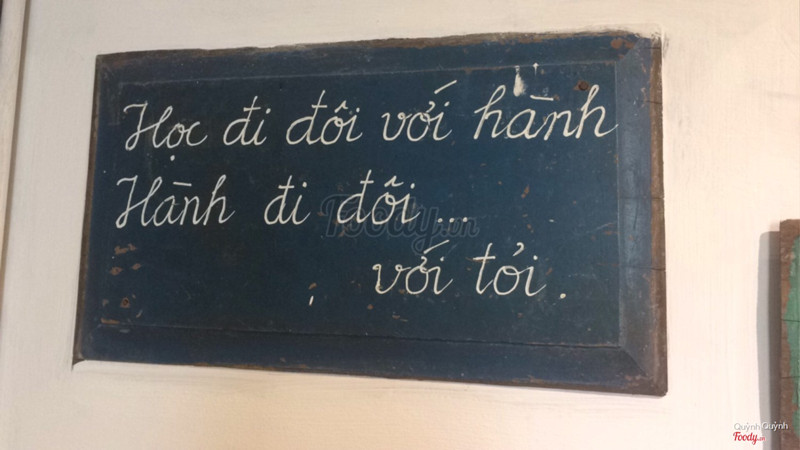 Học đi đôi với hành
Hành đi đôi...
với tỏi.
Foody.vn
Quỳnh Quỳnh
Foody.vn